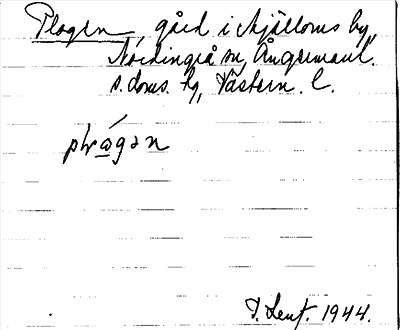 Plogen, gård i Mjälloms by,
Nordingrå sn, Ångermanl.
s. doms. hg, Västern. l.
plwågən
D. Lent. 1944.